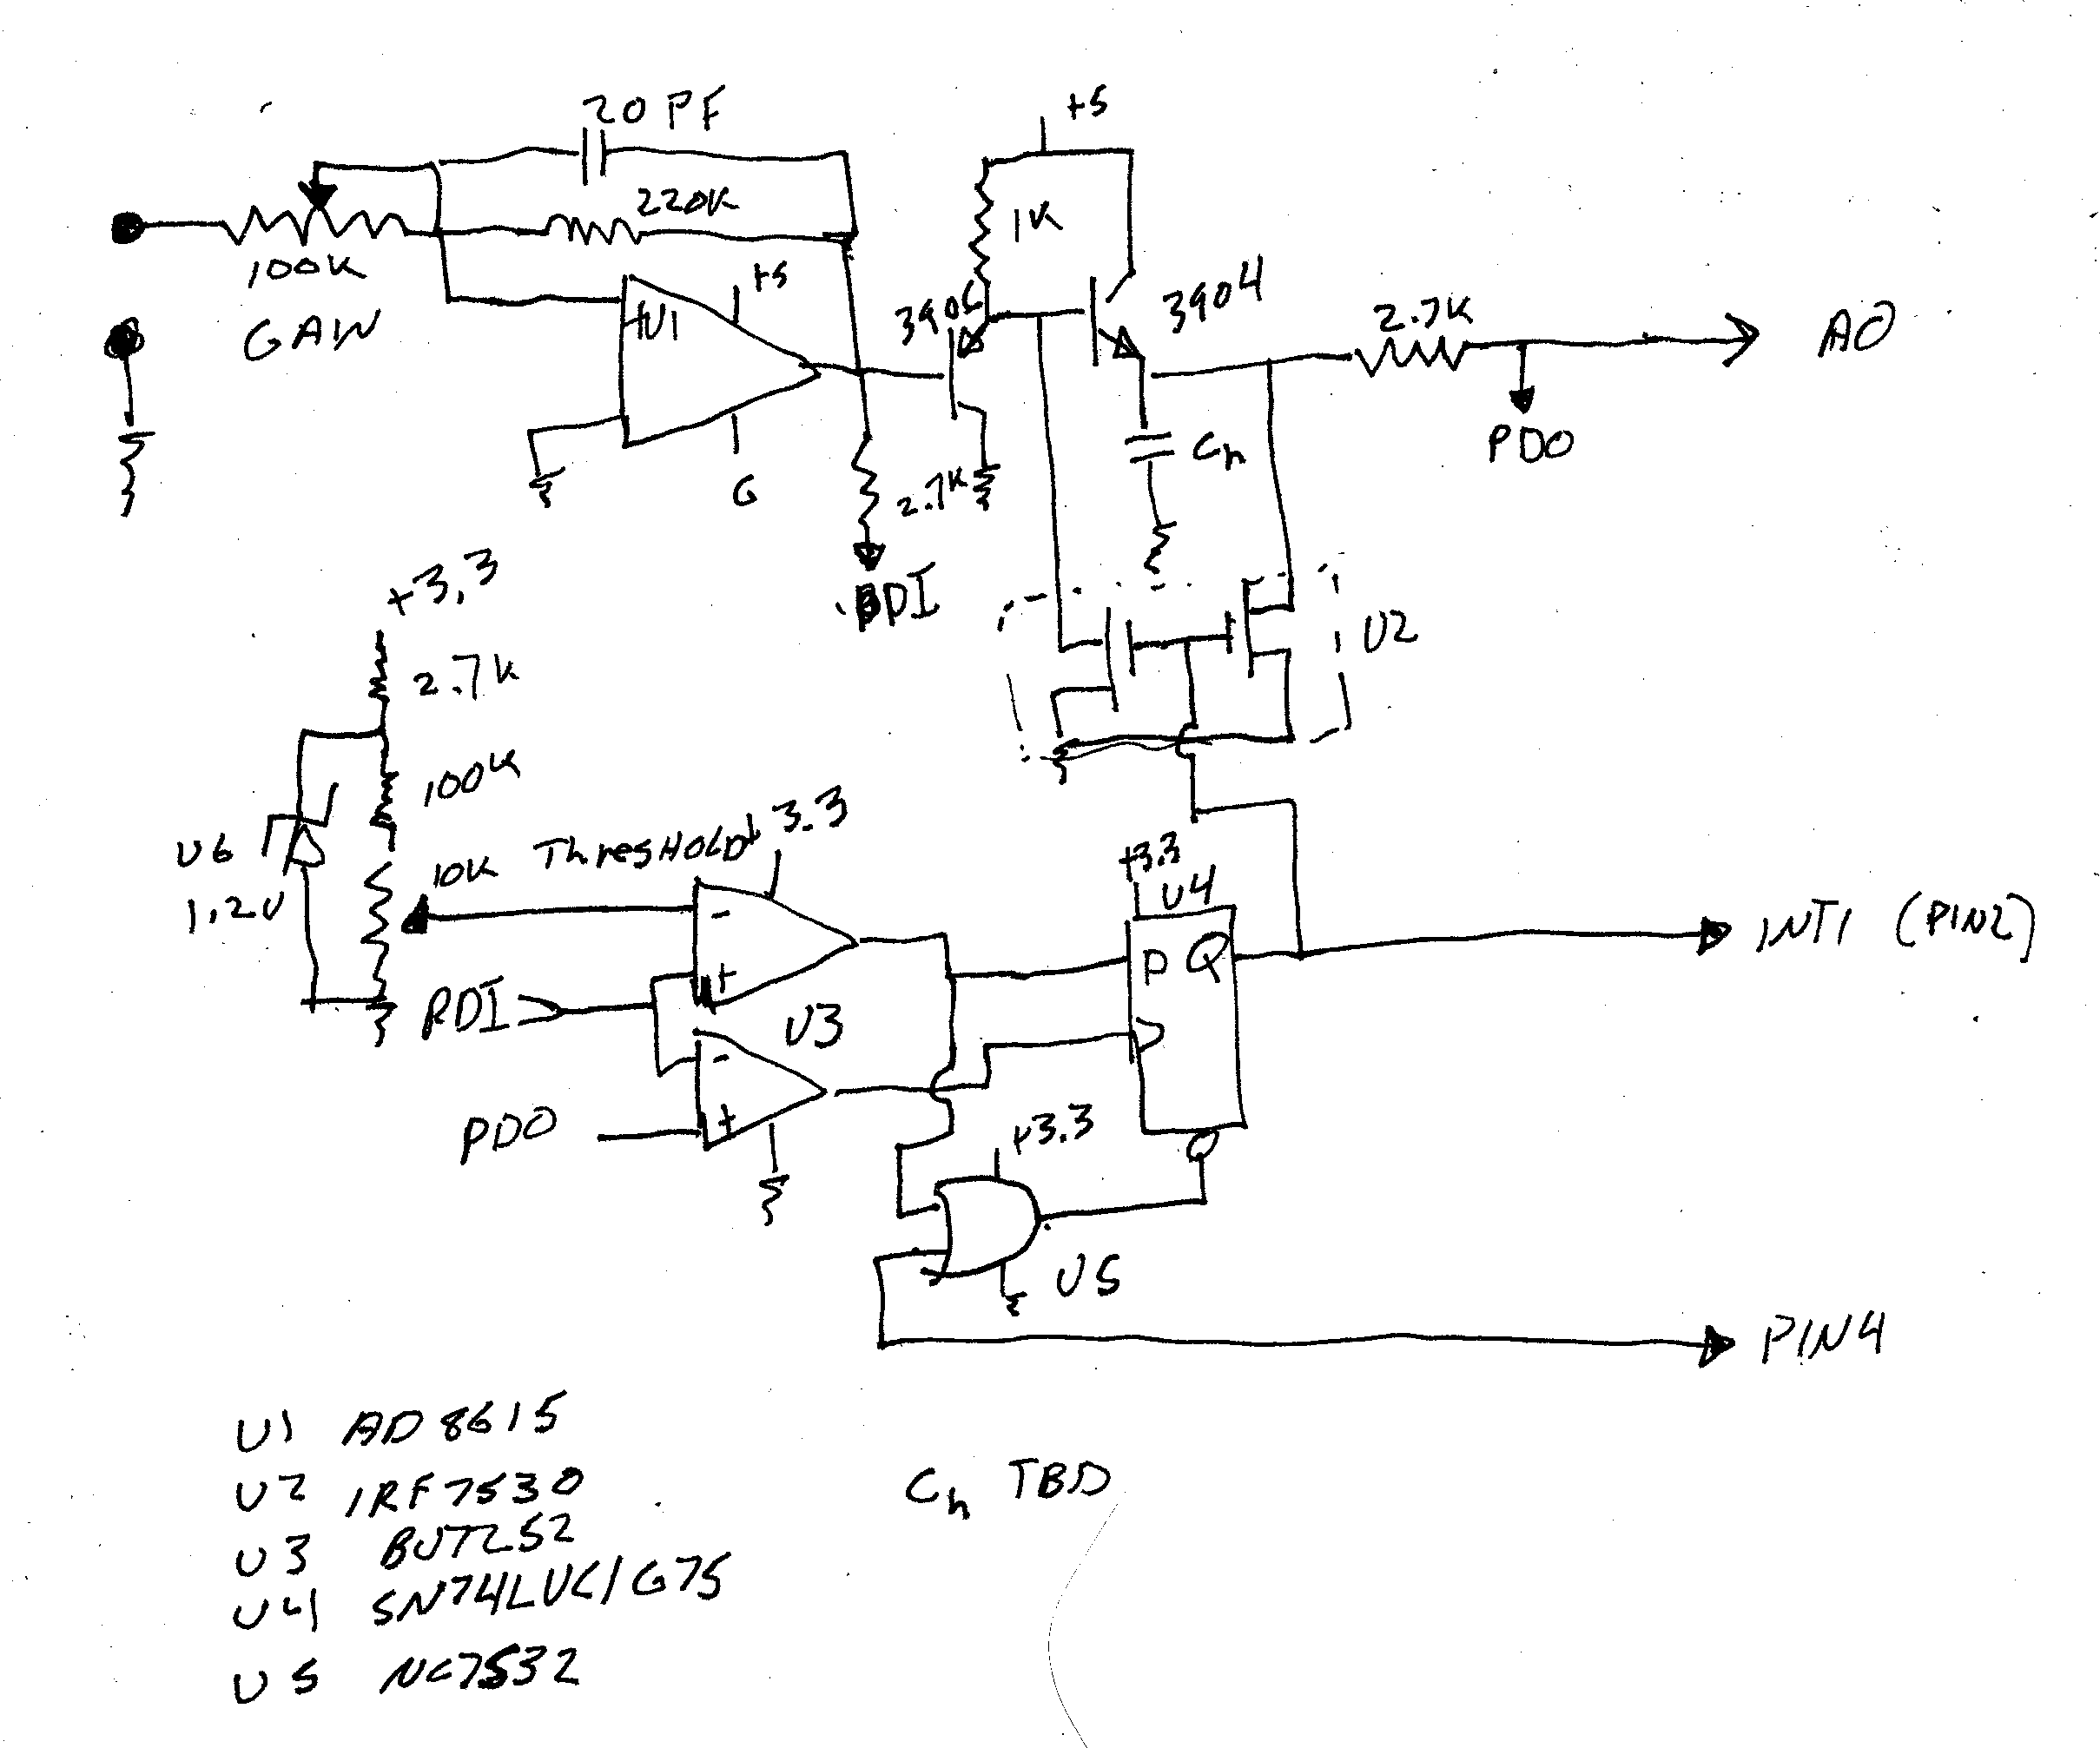 20 PF
220K
100K
GAIN
+5
U1
G
3906
+5
1K
3904
2.7K
A0
PDO
Ch
2.7K
PDI
U2
+3.3
2.7K
100K
U6
1.2V
10K THRESHOLD
+3.3
-
+
U3
PDI
-
+
PDO
+3.3
U4
D Q
INT1 (PIN2)
+3.3
U5
PIN4
U1 AD8615
U2 IRF7530
U4 SN74LVC1G75
U5 NC7S32
Ch TBD